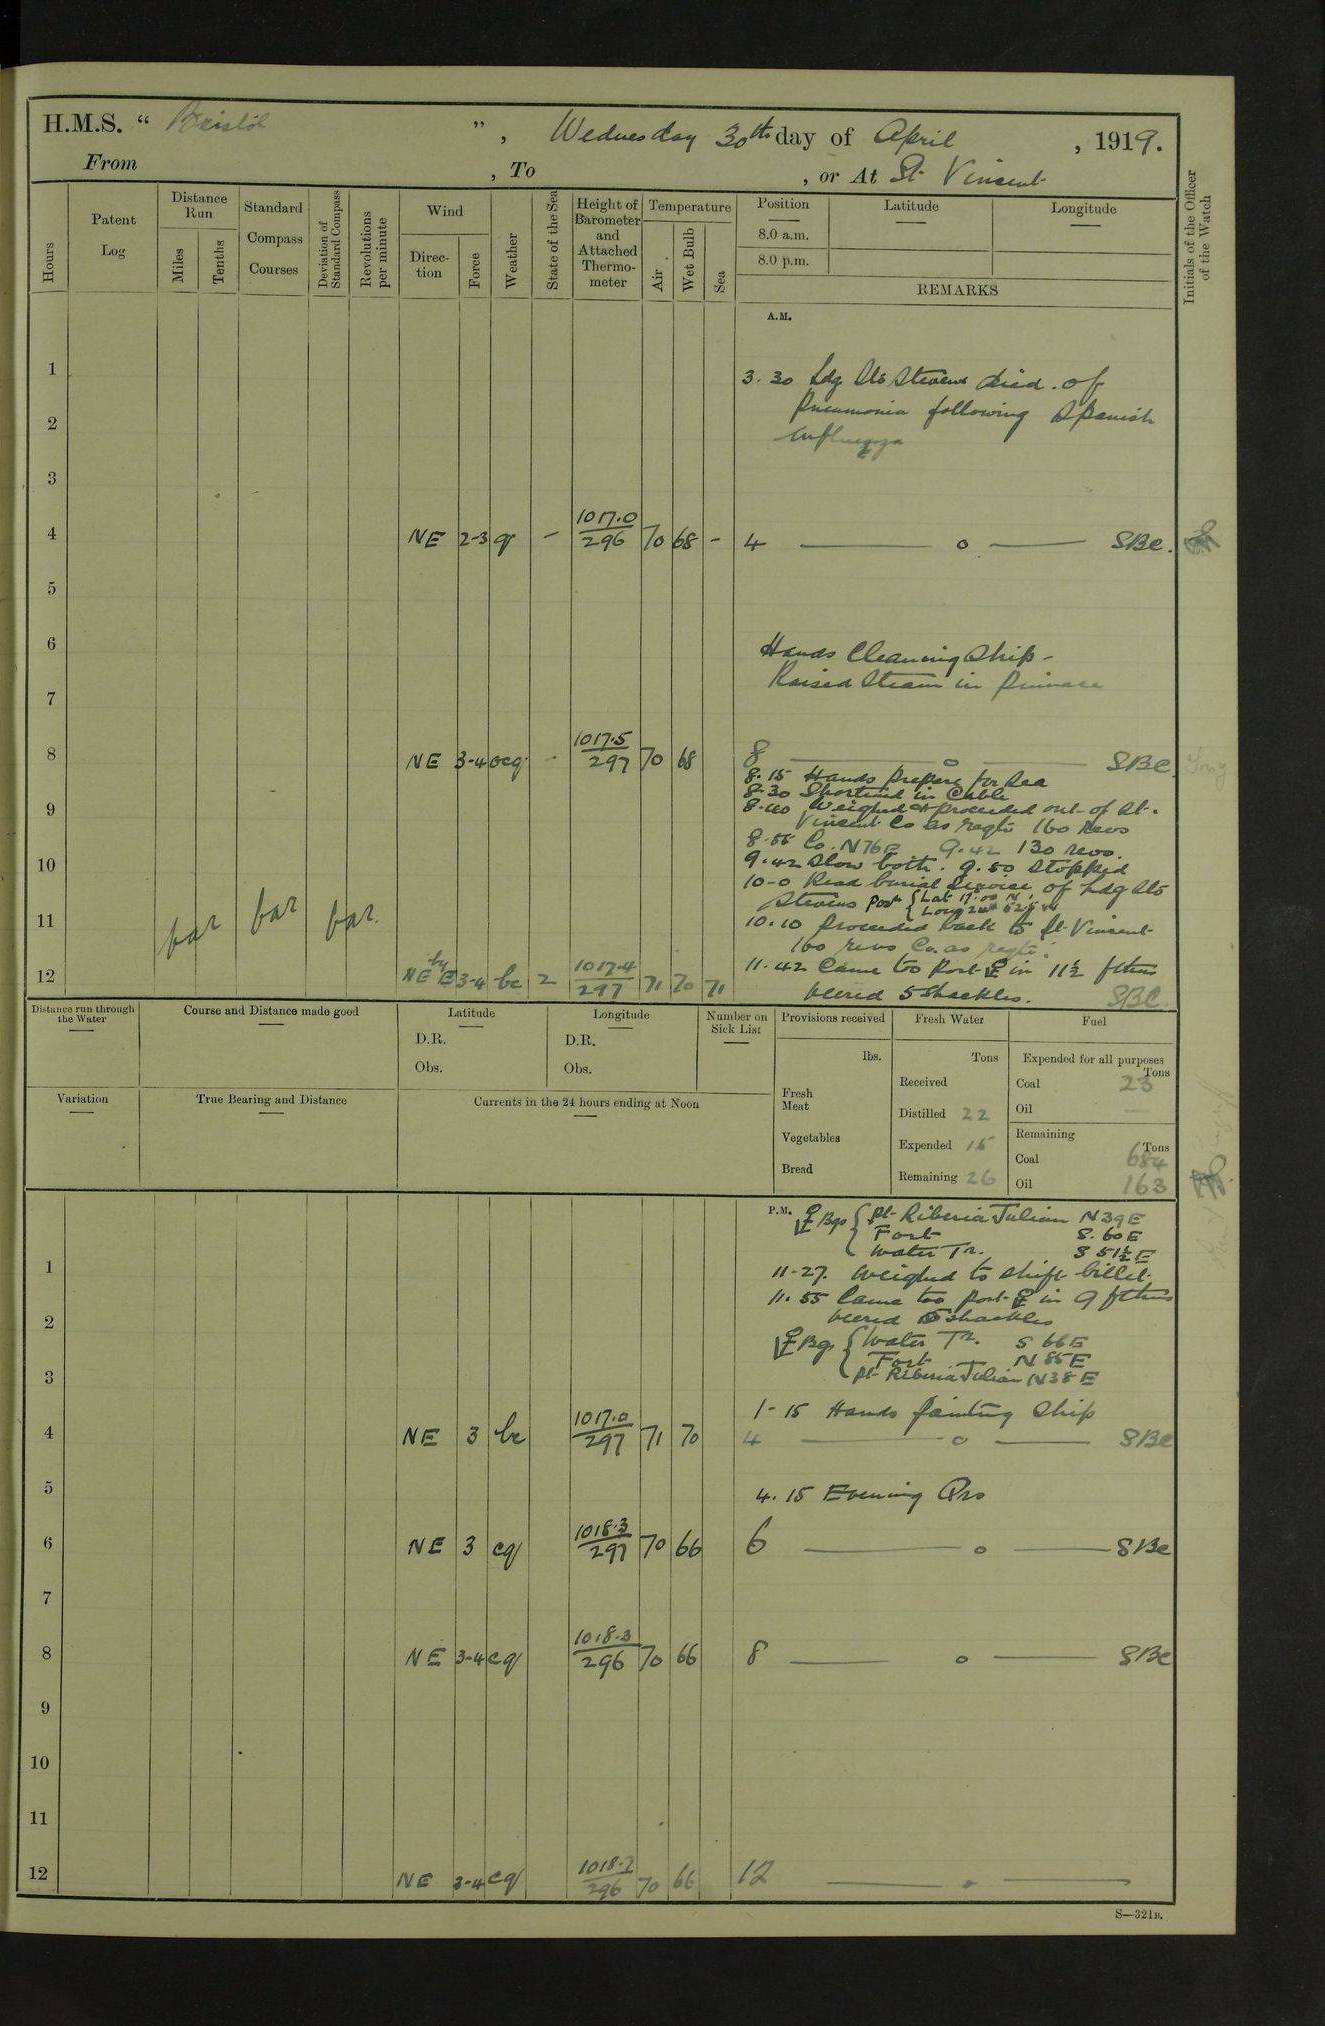 H.M.S. " Bristol ", Wednesday 30th day of April, 1919.
From , To , or At St. Vincent
Hours
Patent Log
Distance Run
Miles
Tenths
Standard Compass Courses
Deviation of Standard Compass
Revolutions per minute
Wind
Direc-tion
Force
Weather
State of the Sea
Height of Barometer and Attached Thermo-meter
Temperature
Air
Wet Bulb
Sea
Position
8.0 a.m.
8.0 p.m.
Latitude
Longitude
REMARKS
Initials of the Officer of the Watch
A.M.
1
3.30 Ldg Sto Stevens died of
2
Pneumonia following Spanish
Influenza
3
4 NE 2-3 q - 1017.0/296 70 68 - 4 — o — SBC.
5
6
Hands Cleaning Ship -
Raised Steam in Pinnace
7
8 NE 3-4 ocq - 1017.5/297 70 68 8 — o — SBC
8.15 Hands prepare for Sea
8.30 Shortened in Cable
9
8.40 Weighed & proceeded out of St.
Vincent Co as reqte 160 revs
8.55 Co. N76E 9.42 130 revs.
10
9.42 Slow both. 9.50 Stopped
10-0 Read burial Service of Ldg Sto
Stevens Posn { Lat 17.00 N.
11 var var var
10.10 proceeded back to St. Vincent
160 revs Co. as reqte.
12 NE by E 3-4 bc 2 1017.4/297 71 70 71
11.42 Came too Port ⚓ in 11½ fthms
veered 5 Shackles. SBC.
Distance run through the Water
Course and Distance made good
Latitude
D.R.
Obs.
Longitude
D.R.
Obs.
Number on Sick List
Provisions received
lbs.
Fresh Meat
Vegetables
Bread
Fresh Water
Tons
Received
Distilled 22
Expended 15
Remaining 26
Fuel
Expended for all purposes
Tons
Coal 23
Oil —
Remaining
Tons
Coal 684
Oil 163
Variation
True Bearing and Distance
Currents in the 24 hours ending at Noon
P.M.
⚓ Bgs { Pt. Riberia Julian N39E
Fort S.60E
Water Tr. S 51½ E
1
11-27. Weighed to shift billet.
11.55 Came too port ⚓ in 9 fthms
2
veered 5 shackles
⚓ Bgs { Water Tr. S 66E
Fort N 85E
3
Pt. Riberia Julian N38E
1-15 Hands painting Ship
4 NE 3 bc 1017.0/297 71 70 4 — o — SBC
5
4.15 Evening Qrs
6 NE 3 cq 1018.3/297 70 66 6 — o — SBC
7
8 NE 3-4 cq 1018.3/296 70 66 8 — o — SBC
9
10
11
12 NE 3-4 cq 1018.2/296 70 66 12 — o —
S—321B.